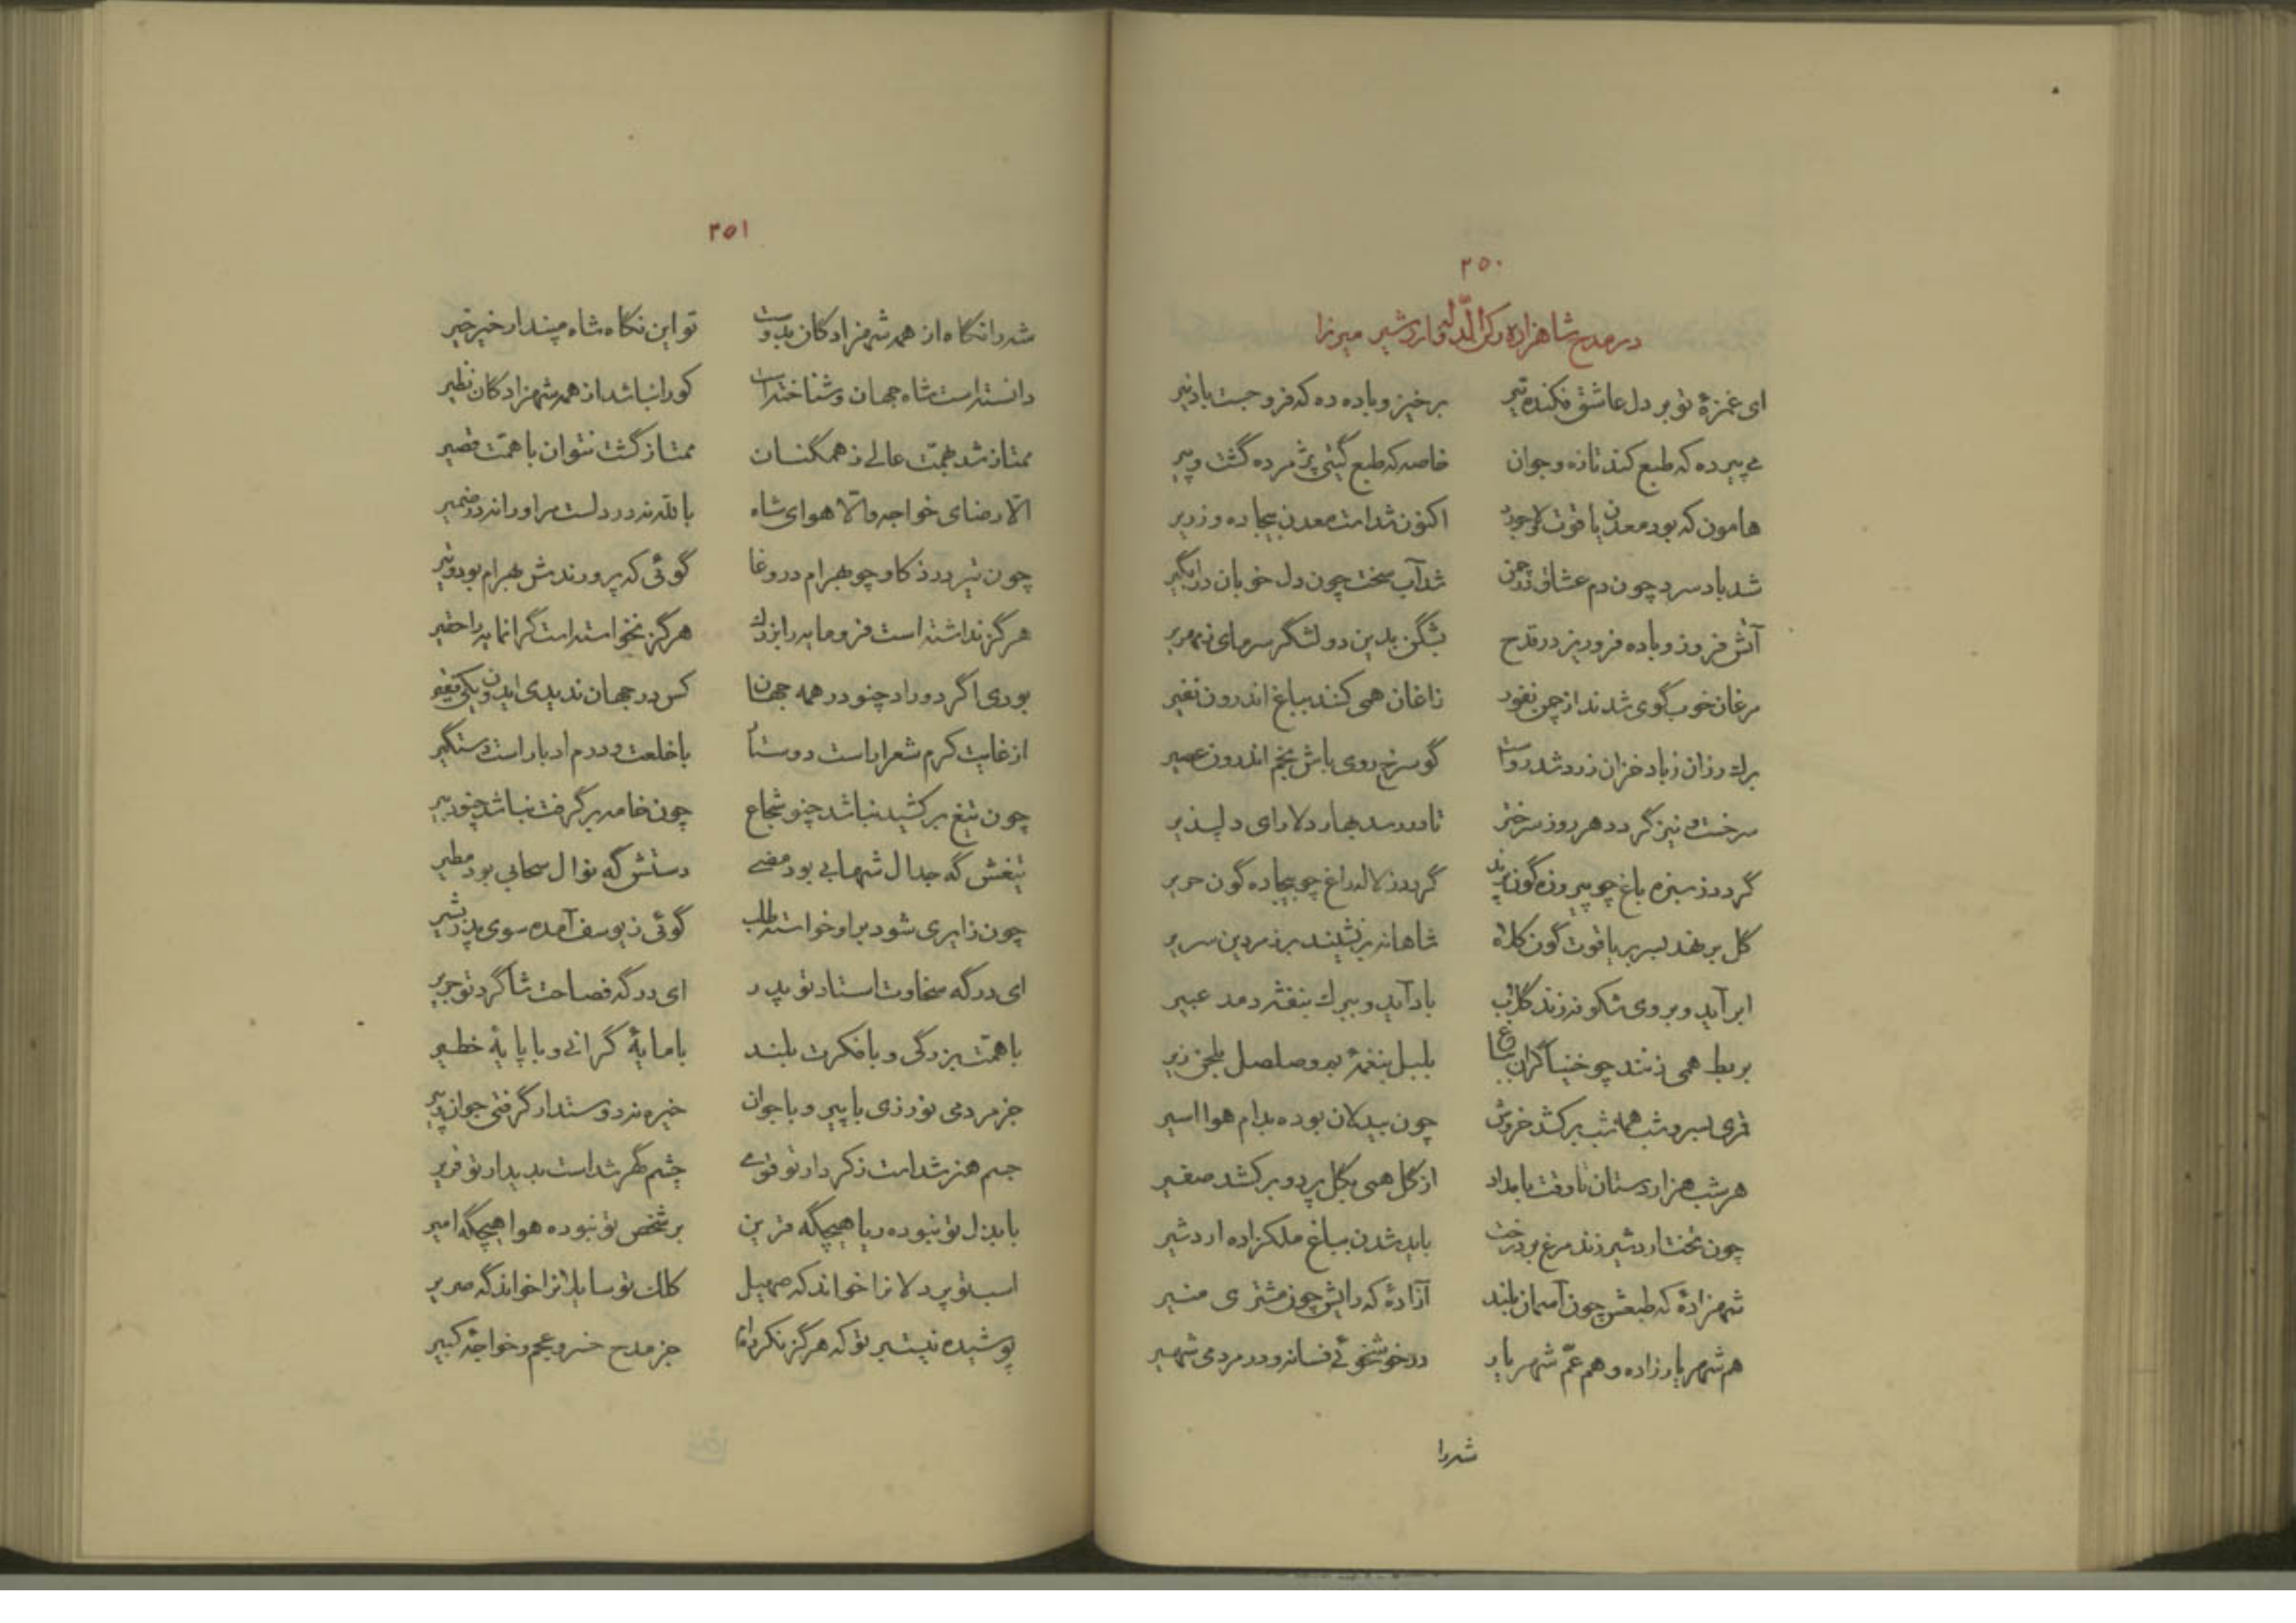 ۲۵۰
در مدح شاهزاده رکن الدوله اردشیر میرزا
ای غمزهٔ تو بر دل عاشق فکنده تیر برخیز و باده ده که فرو جست باد تیر
می پیر ده که طبع کند تازه و جوان خاصه که طبع گیتی پژمرده گشت و پیر
هامون که بود معدن یاقوت لاجورد اکنون شداست معدن بیجاده و زریر
شد باد سرد چون دم عشاق در چمن شد آب سخت چون دل خوبان در آبگیر
آتش فروز و باده فرو ریز در قدح بشکن بدین دو لشگر سرمای زمهریر
مرغان خوب گوی شدند از چمن نفور زاغان همی کنند بباغ اندرون نفیر
برك رزان ز باد خزان زرد شد رواست گو سرخ روی باش بخم اندرون عصیر
سرخست و نیز گردد هر روز سرختر تا در رسد بهار دلارای دلپذیر
گردد ز سبزه باغ چو پیروزه گون پرند گردد ز لاله راغ چو بیجاده گون حریر
گل بر نهد بسر بر یاقوت گون کلاه شاهانه بر نشیند بر زمردین سریر
ابر آید و بروی شکوفه زند گلاب باد آید و ببرك بنفشه دمد عبیر
بربط همی زنند چو خنیاگران بباغ بلبل بنغمهٔ بم و صلصل بلحن زیر
قمری بسرو شب همه شب برکشد خروش چون بیدلان بوده بدام هوا اسیر
هر شب هزار دستان تا وقت بامداد از گل همی بگل پرد و برکشد صفیر
چون تخت اردشیر زند مرغ بر درخت باید شدن بباغ ملکزاده اردشیر
شهزادهٔ که طبعش چون آسمان بلند آزادهٔ که رایش چون مشتری منیر
هم شهریار زاده و هم عمّ شهریار در خوشخوئی فسانه و در مردمی شهیر
شه را
۲۵۱
شه را نگاه از همه شهزادگان بدوست تو این نگاه شاه مپندار خیر خیر
دانسته است شاه جهان و شناخته است کو را نباشد از همه شهزادگان نظیر
ممتاز شد بهمّت عالی ز همگنان ممتاز گشت نتوان با همّت قصیر
الّا رضای خواجه والّا هوای شاه بالله نه در دلست مر او را نه در ضمیر
چون تیر در ذکا و چو بهرام در وغا گوئی که پرورندش بهرام بود و تیر
هرگز نداشته است فرومایه را بزرك هرگز نخواسته است گرانمایه را حقیر
بودی اگر دو راد چنو در همه جهان کس در جهان ندیدی ایدون یکی فقیر
از غایت کرم شعرا راست دوستار با خلعت و درم ادبا راست دستگیر
چون تیغ برکشید نباشد چنو شجاع چون خامه برگرفت نباشد چنو دبیر
تیغش گه جدال شهابی بود مضی دستش گه نوال سحابی بود مطیر
چون زایری شود بر او خواسته طلب گوئی ز یوسف آمده سوی پدر بشیر
ای در گه سخاوت استاد تو پدر ای در گه فصاحت شاگرد تو جریر
با همّت بزرگی و با فکرت بلند با مایهٔ گرانی و با پایهٔ خطیر
جز مردمی نورزی با پیر و با جوان خیره نه دوستدار گرفتی جوان و پیر
جسم هنر شداست ز کردار تو قوی چشم گهر شداست بدیدار تو قریر
با بذل تو نبوده ریا هیچگه قرین بر شخص تو نبوده هوا هیچگه امیر
اسب تو پردلانرا خواند گه صهیل کلك تو سایلانرا خواند گه صریر
پوشیده نیست بر تو که هرگز نکرده‌ام جز مدح خسرو عجم و خواجهٔ کبیر